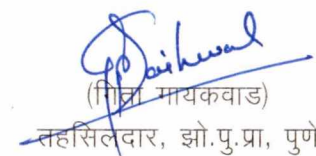 (गिता गायकवाड)
तहसिलदार, झो.पु.प्रा, पुणे